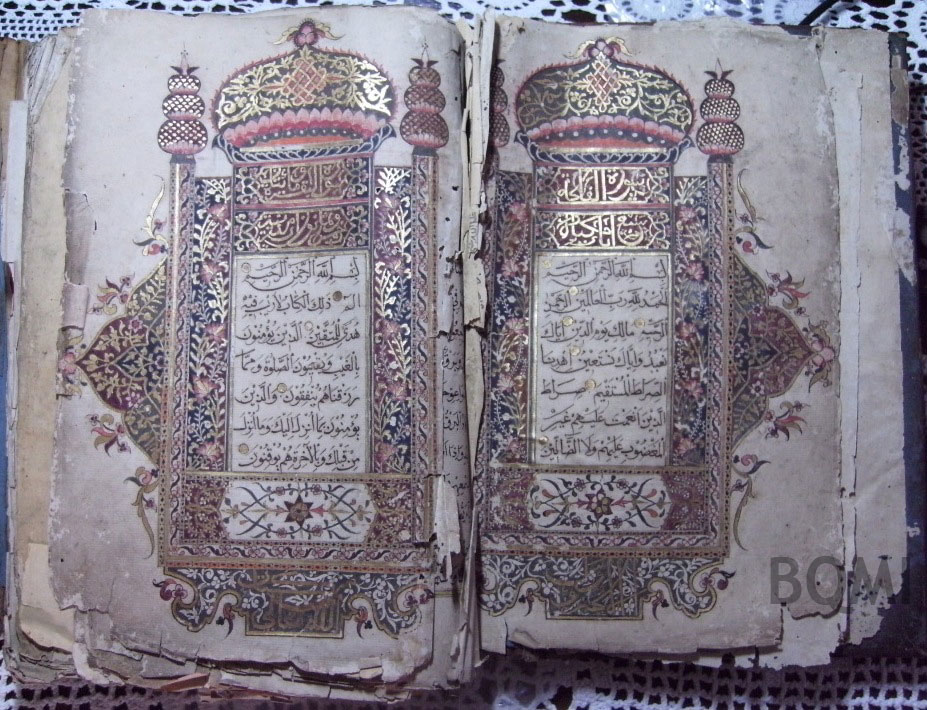 بسم الله الرحمن الرحيم
الحمد لله رب العالمين الرحمن
الرحيم مالك يوم الدين اياك
نعبد واياك نستعين اهدنا
الصراط المستقيم صراط
الذين انعمت عليهم غير
المغضوب عليهم ولا الضالين
بسم الله الرحمن الرحيم
الم ذلك الكتاب لا ريب فيه
هدى للمتقين الذين يؤمنون
بالغيب ويقيمون الصلوة ومما
رزقناهم ينفقون والذين
يؤمنون بما انزل اليك وما انزل
من قبلك وبالاخرة هم يوقنون
BOMI